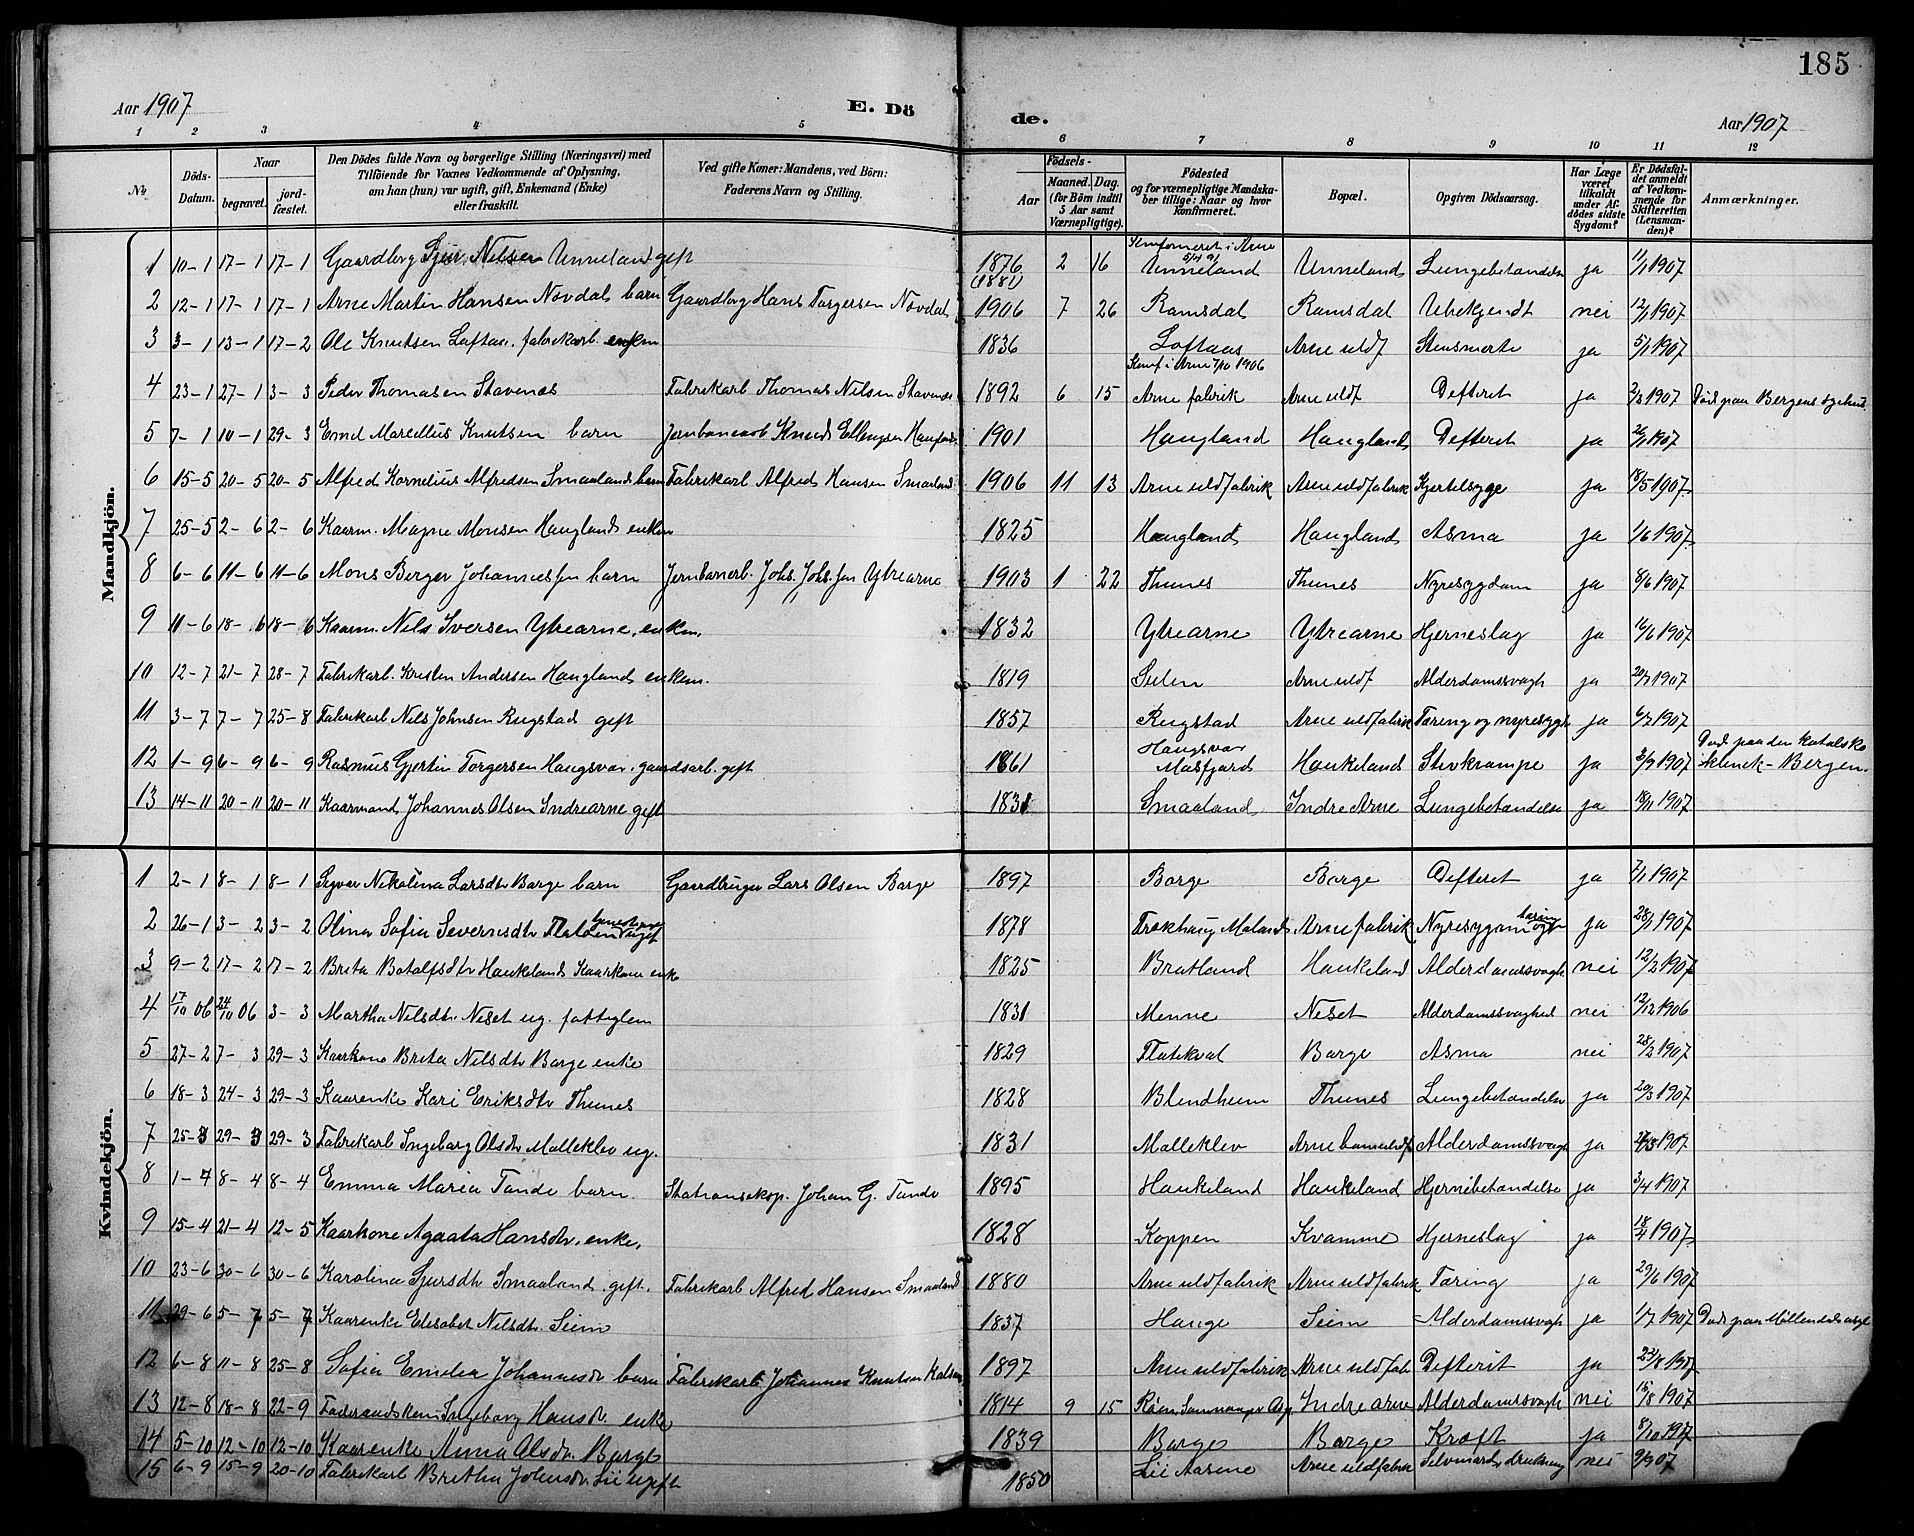 185
Aar 1907 E. Dö de. Aar 1907
1 2 3 4 5 6 7 8 9 10 11 12
№ Döds-Datum. Naar begravet. jordfæstet. Den Dödes fulde Navn og borgerlige Stilling (Næringsvei) med Tilföiende for Voxnes Vedkommende af Oplysning, om han (hun) var ugift, gift, Enkemand (Enke) eller fraskilt. Ved gifte Koner: Mandens, ved Börn: Faderens Navn og Stilling. Födsels- Aar Maaned. Dag. (for Börn indtil 5 Aar samt Værnepligtige). Födested og for værnepligtige Mandskaber tillige: Naar og hvor konfirmeret. Bopæl. Opgiven Dödsaarsag. Har Læge været tilkaldt under Afdödes sidste Sygdom? Er Dödsfaldet anmeldt af Vedkommende for Skifteretten (Lensmanden)? Anmærkninger.
Mandkjön.
1 10-1 17-1 17-1 Gaardbrg Sjur Nilsen Unneland gift 1876 (1881) 2 16 Konfirmeret i Arne 5/4 91 Unneland Unneland Lungebetændelse ja 11/1 1907
2 12-1 17-1 17-1 Arne Martin Hansen Növdal barn Gaardbrg Hans Torgersen Növdal 1906 7 26 Ramsdal Ramsdal Ubekjendt nei 12/1 1907
3 3-1 13-1 17-2 Ole Knutsen Loftaas. fabrikarb. enkm 1836 Loftaas Arne uldf Stensmerte ja 5/1 1907
4 23-1 27-1 3-3 Peder Thomasen Stavenes Fabrikarb Thomas Nilsen Stavenes 1892 6 15 Konf i Arne 7/10 1906 Arne fabrik Arne uldf Defterit ja 2/2 1907 Död paa Bergens sygehus
5 7-1 10-1 29-3 Emil Marcellus Knutsen barn Jernbanearb Knud Ellingsen Haugland 1901 Haugland Haugland Defterit ja 26/1 1907
6 15-5 20-5 20-5 Alfred Kornelius Alfredsen Smaaland barn Fabrikarb Alfred Hansen Smaaland 1906 11 13 Arne uldfabrik Arne uldfabrik Kjertelsyge ja 18/5 1907
7 25-5 2-6 2-6 Kaarm. Magne Monsen Haugland enkem 1825 Haugland Haugland Asma ja 1/6 1907
8 6-6 11-6 11-6 Mons Berger Johannessen barn Jernbanearb. Johs. Johs.sen Ytrearne 1903 1 22 Thunes Thunes Nyresygdom ja 8/6 1907
9 11-6 18-6 18-6 Kaarm. Nils Iversen Ytrearne, enkm. 1832 Ytrearne Ytrearne Hjerneslag ja 16/6 1907
10 12-7 21-7 28-7 Fabrikarb. Kristen Andersen Haugland enkem. 1819 Sulen Arne uldf Alderdomssvagh ja 20/7 1907
11 3-7 7-7 25-8 Fabrikarb Nils Johnsen Rugstad gift 1857 Rugstad Arne uldfabrik Tæring og nyresygd ja 6/7 1907
12 1-9 6-9 6-9 Rasmus Gjertin Torgersen Haugsvær. gaardsarb. gift 1861 Haugsvær Masfjord Haukeland Strvkrampe ja 3/9 1907 Död paa den katolske klinek - Bergen
13 14-11 20-11 20-11 Kaarmand Johannes Olsen Indrearne gift 1831 Smaaland Indre Arne Lungebetændelse ja 18/11 1907
Kvindekjön.
1 2-1 8-1 8-1 Nikolina Larsdtr Borge barn Gaardbruger Lars Olsen Borge 1897 Borge Borge Defterit ja 7/1 1907
2 26-1 3-2 3-2 Olina Sofia Severinsdtr ugift 1878 Arne fabrik Nyresygdom og tæring ja 28/1 1907
3 9-2 17-2 17-2 Brita Botolfsdtr Haukeland Kaarkone enke 1825 Bratland Haukeland Alderdomssvagh nei 12/2 1907
4 17/10 06 24/10 06 3-3 Martha Nilsdtr. Neset ug. fattiglem 1831 Menne Neset Alderdomssvaghed nei 12/12 1906
5 27-2 7-3 29-3 Kaarkone Brita Nilsdtr Borge enke 1829 Flatekval Borge Asma nei 28/2 1907
6 18-3 24-3 29-3 Kaarenke Kari Eriksdtr Thunes 1828 Blindheim Thunes Lungebetændelse ja 20/3 1907
7 25-3 29-3 29-3 Fabrikarb Ingeborg Olsdtr Malleklev ug. 1831 Malleklev Alderdomssvagh ja 1907
8 1-4 8-4 8-4 Emma Maria Tande barn. Stationsekop. Johan G. Tande 1895 Haukeland Haukeland Hjernebetændelse ja 3/4 1907
9 15-4 21-4 12-5 Kaarkone Agaata Hansdtr. enke. 1828 Koppen Kvamme Hjerneslag ja 18/4 1907
10 23-6 30-6 30-6 Karolina Sjursdtr Smaaland. gift. Fabrikarb Alfred Hansen Smaaland 1880 Arne uldfabrik Arne uldfabrik Tæring ja 29/6 1907
11 29-6 5-7 5-7 Kaarenke Elisabet Nilsdtr. Seim 1837 Hauge Seim Alderdomssvagh ja 1/7 1907 Död paa Möllendalsasyl
12 6-8 11-8 25-8 Sofia Emilia Johannesdtr barn Fabrikarb Johannes Knutsen 1897 Arne uldfabrik Arne uldfab Defterit ja 23/8 1907
13 12-8 18-8 22-9 Ingeborg Hansdtr. enke 1814 9 15 Indre arne Alderdomssvagh nei 15/8 1907
14 5-10 12-10 12-10 Kaarenke Anna Olsdtr. Borge 1839 Borge Borge Kræft ja 8/10 1907
15 6-9 15-9 20-10 Fabrikarb Britha Johnsdtr. Lii ugift 1850 Lii Aasene Arne uldfabrik Selvmord drukning nei 9/9 07